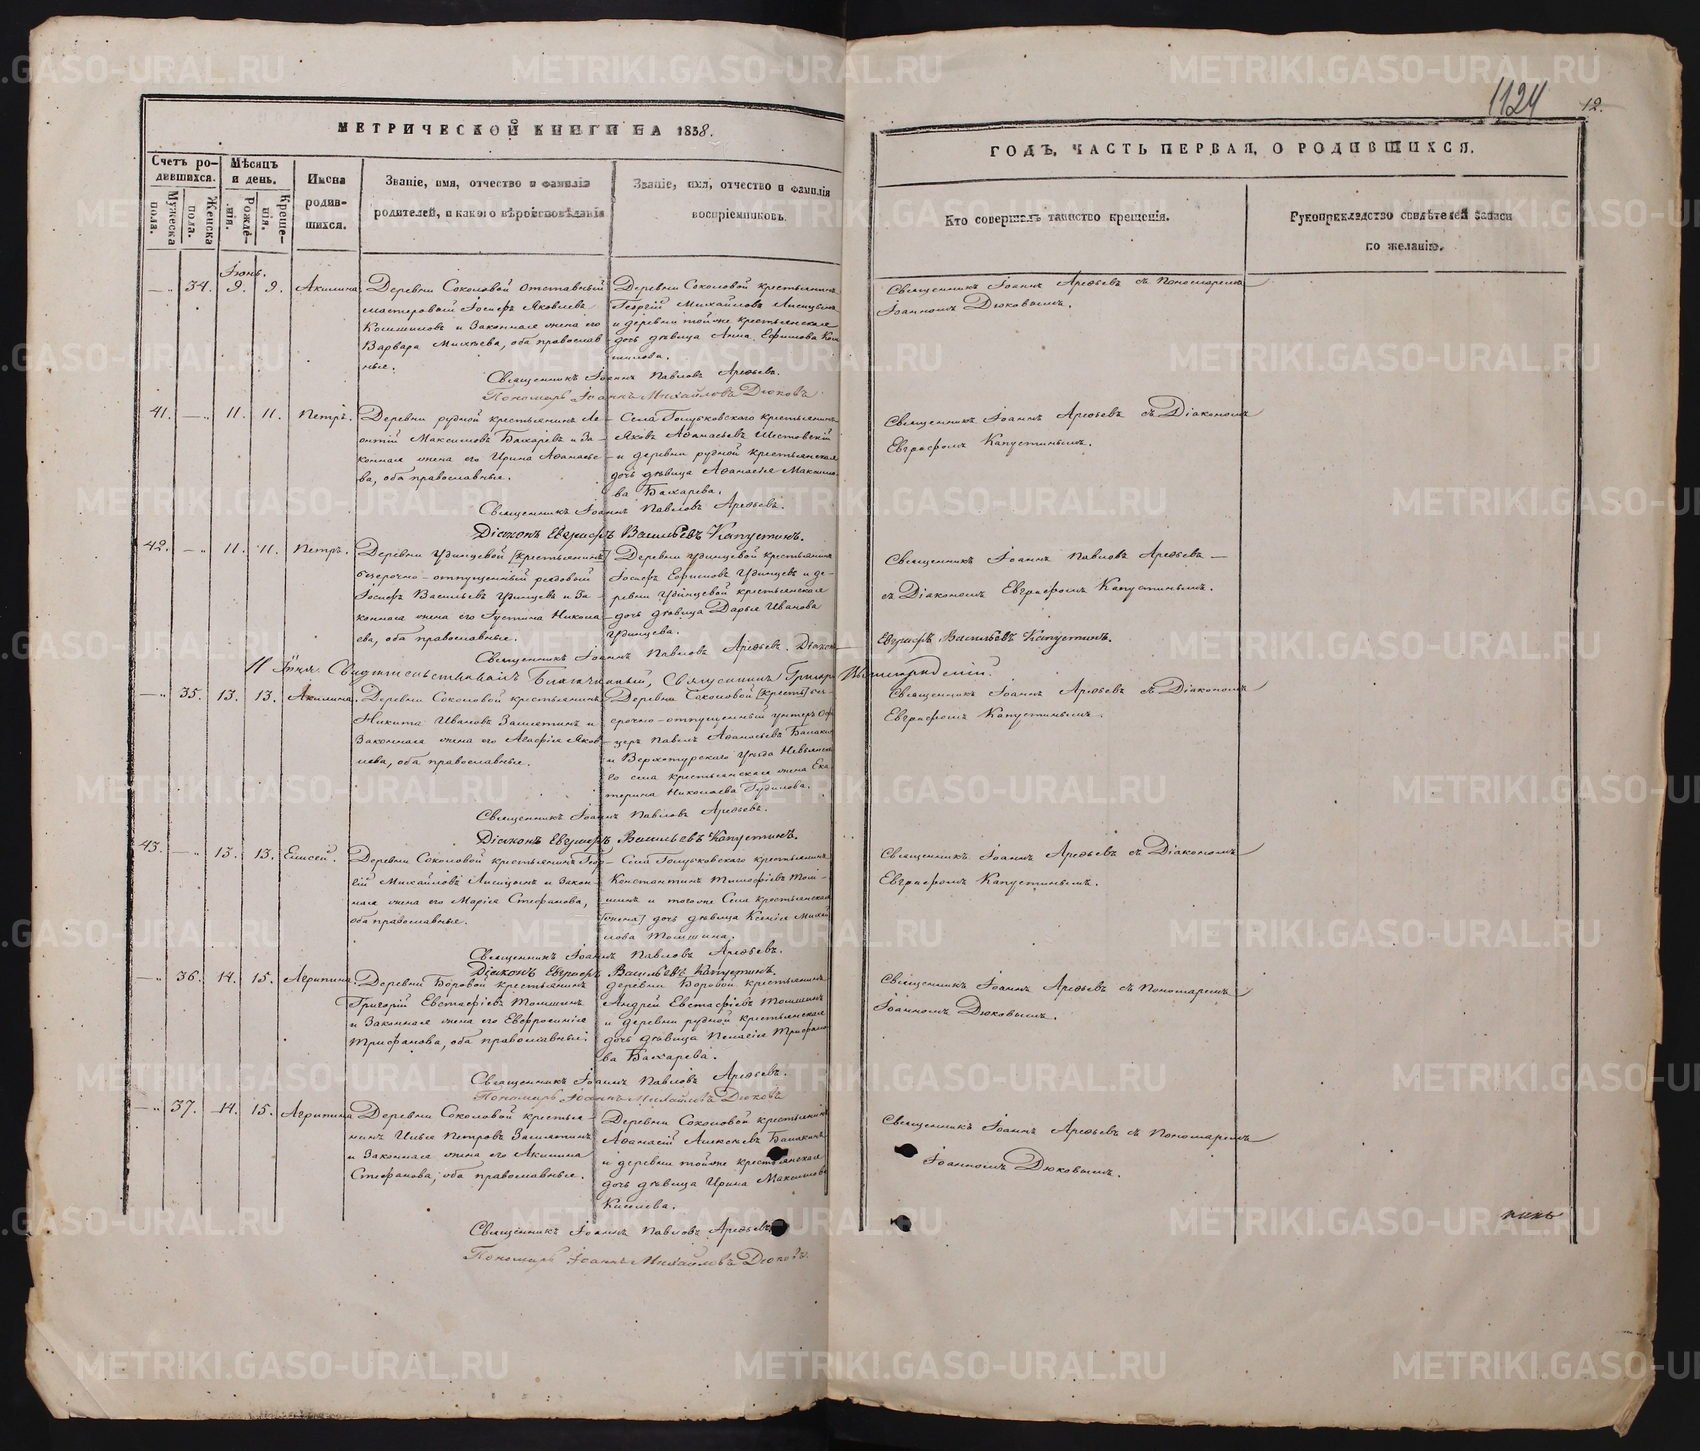 1124
12.
МЕТРИЧЕСКОЙ КНИГИ НА 1858.
ГОДЪ, ЧАСТЬ ПЕРВАЯ, О РОДИВШИХСЯ.
Счетъ ро-
дившихся.
Мужеска
пола.
Женска
пола.
Мѣсяцъ
и день.
Рожде-
нія.
Креще-
нія.
Имена
родив-
шихся.
Званіе, имя, отчество и фамилія
родителей, и какого вѣроисповѣданія
Званіе, имя, отчество и фамилія
воспріемниковъ.
Кто совершалъ таинство крещенія.
Рукоприкладство свидѣтелей записи
по желанію.
Іюнь.
34. 9. 9. Акилина.
Деревни Соколовой отставный
мастеровый Іосифъ Яковлевъ
и Законная жена его
Варвара Михѣева, оба православ
ные.
Деревни Соколовой крестьянинъ
Георгій Михайловъ Лисицынъ
и деревни тойже крестьянская
дочь дѣвица Анна Ефимова
Священникъ Іоаннъ Арефьевъ съ Пономаремъ
Іоанномъ Дюковымъ.
Священникъ Іоаннъ Павловъ Арефьевъ.
Пономарь Іоаннъ Михайловъ Дюковъ
41. 11. 11. Петръ.
Деревни рудной крестьянинъ Ле-
онтій Максимовъ Бахаревъ и За-
конная жена его Ирина Аѳанасье-
ва, оба православные.
Села Голубковскаго крестьянинъ
Яковъ Аѳанасьевъ Шестовскій
и деревни рудной крестьянская
дочь дѣвица Аѳанасія Максимо
ва Бахарева.
Священникъ Іоаннъ Арефьевъ съ Діакономъ
Евграфомъ Капустинымъ.
Священникъ Іоаннъ Павловъ Арефьевъ.
Діаконъ Евграфъ Васильевъ Капустинъ.
42. 11. 11. Петръ.
Деревни Удинцевой [крестьянинъ]
безсрочно-отпущенный рядовой
Іосифъ Васильевъ Удинцевъ и За-
конная жена его Іустина Никола
ева, оба православные.
Деревни Удинцевой крестьянинъ
Іосифъ Ефимовъ Удинцевъ и де-
ревни Удинцевой крестьянская
дочь дѣвица Дарья Иванова
Удинцева.
Священникъ Іоаннъ Павловъ Арефьевъ
съ Діакономъ Евграфомъ Капустинымъ.
Священникъ Іоаннъ Павловъ Арефьевъ. Діаконъ
Евграфъ Васильевъ Капустинъ.
11 Іюня Свидѣтельствовалъ Благочинный, Священникъ
35. 13. 13. Акилина.
Деревни Соколовой крестьянинъ
Никита Ивановъ Замятинъ и
Законная жена его Агафія Яков
лева, оба православные.
Деревни Соколовой [крестья] без
срочно-отпущенный унтеръ Оф
церъ Павелъ Аѳанасьевъ
и Верхотурскаго Уѣзда Невьянска
го села крестьянская жена Ека
терина Николаева
Священникъ Іоаннъ Арефьевъ съ Діакономъ
Евграфомъ Капустинымъ.
Священникъ Іоаннъ Павловъ Арефьевъ.
Діаконъ Евграфъ Васильевъ Капустинъ.
43. 13. 13. Елисей.
Деревни Соколовой крестьянинъ Геор
гій Михайловъ Лисицынъ и Закон
ная жена его Марія Стефанова,
оба православные.
Села Голубковскаго крестьянинъ
Константинъ Тимофѣевъ Том-
шинъ и тогоже Села крестьянская
[жена] дочь дѣвица Ксенія Михай
лова Томшина.
Священникъ Іоаннъ Арефьевъ съ Діакономъ
Евграфомъ Капустинымъ.
Священникъ Іоаннъ Павловъ Арефьевъ.
Діаконъ Евграфъ Васильевъ Капустинъ.
36. 14. 15. Агрипина.
Деревни Боровой крестьянинъ
Григорій Евстафіевъ Томшинъ
и Законная жена его Евфросинія
Трифанова, оба православные.
деревни Боровой крестьянинъ
Андрей Евстафіевъ Томшинъ
и деревни рудной крестьянская
дочь дѣвица Пелагія Трифано
ва Бахарева.
Священникъ Іоаннъ Арефьевъ съ Пономаремъ
Іоанномъ Дюковымъ.
Священникъ Іоаннъ Павловъ Арефьевъ.
Пономарь Іоаннъ Михайловъ Дюковъ
37. 14. 15. Агрипина
Деревни Соколовой крестья-
нинъ Илья Петровъ Замятинъ
и Законная жена его Акилина
Стефанова, оба православные.
Деревни Соколовой крестьянинъ
Аѳанасій Алексѣевъ
и деревни тойже крестьянская
дочь дѣвица Ирина Максимова
Киселева.
Священникъ Іоаннъ Арефьевъ съ Пономаремъ
Іоанномъ Дюковымъ.
Священникъ Іоаннъ Павловъ Арефьевъ
Пономарь Іоаннъ Михайловъ Дюковъ.
METRIKI.GASO-URAL.RU